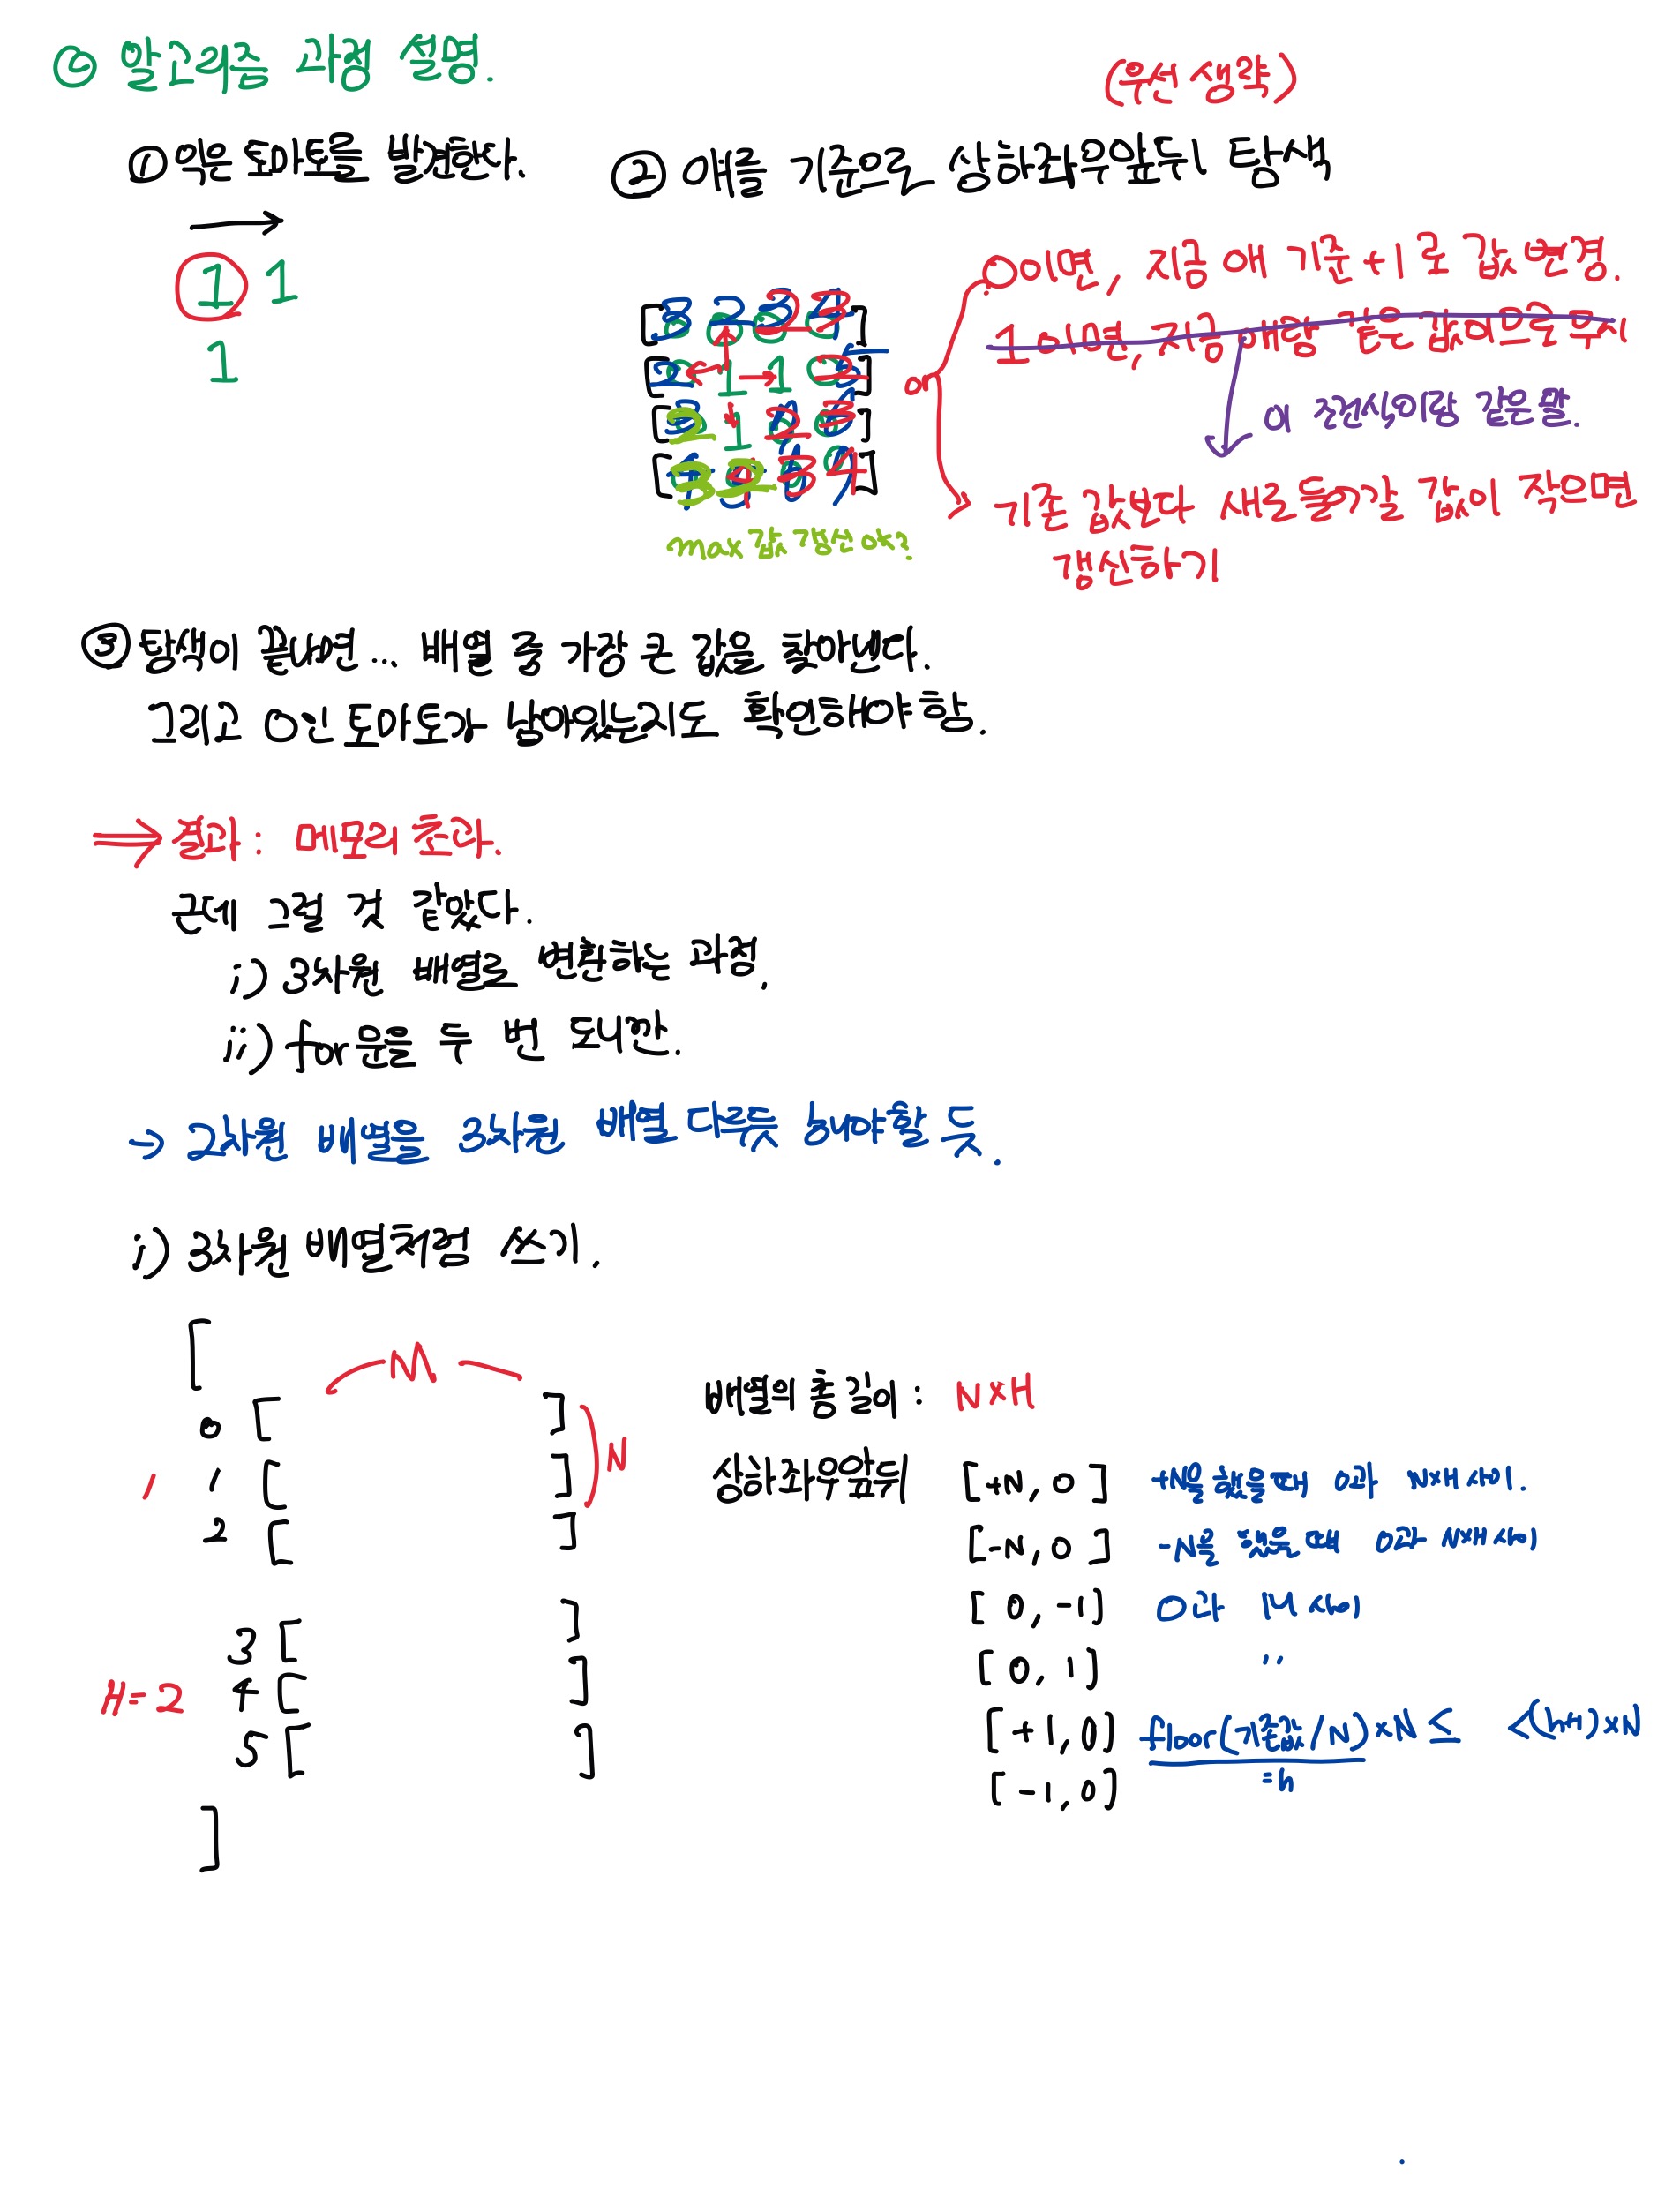 ② 알고리즘 과정 설명.
(우선 생략)
① 익은 토마토를 발견한다.
② 얘를 기준으로 상하좌우앞뒤 탐색
1 1
1
0이면, 지금 애 기준 +1로 값 변경.
1이면, 지금 애랑 같은 값이므로 무시
이 조건식이랑 같은 말.
기존 값보다 새로 들어갈 값이 작으면
갱신하기
③ 탐색이 끝나면... 배열 중 가장 큰 값을 찾아낸다.
그리고 0인 토마토가 남아있는지도 확인해야 함.
⇒ 결과: 메모리 초과.
근데 그럴 것 같았다.
i) 3차원 배열로 변환하는 과정.
ii) for문을 두 번 도니깐.
→ 2차원 배열을 3차원 배열 다루듯 해야할 듯.
i) 3차원 배열처럼 쓰기.
[
M
0 [ ]
N
1 1 [ ]
2 [ ]
3 [ ]
H=2 4 [ ]
5 [ ]
]
배열의 총 길이: N×H
상하좌우앞뒤 [+N, 0] +N을 했을때 0과 N×H 사이.
[-N, 0] -N을 했을 때 0과 N×H 사이
[0, -1] 0과 M 사이
[0, 1] "
[+1, 0] floor(기존값/N)×N ≤ <(h+1)×N
=h
[-1, 0]